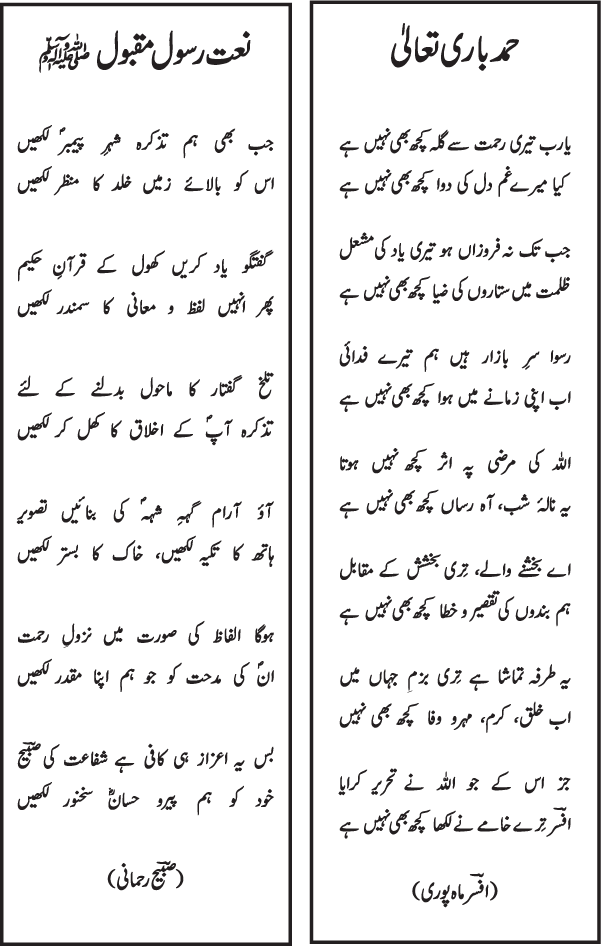 حمد باری تعالیٰ
یارب تیری رحمت سے گلہ کچھ بھی نہیں ہے
کیا میرے غم دل کی دوا کچھ بھی نہیں ہے
جب تک نہ فروزاں ہو تیری یاد کی مشعل
ظلمت میں ستاروں کی ضیا کچھ بھی نہیں ہے
رسوا سرِ بازار ہیں ہم تیرے فدائی
اب اپنی زمانے میں ہوا کچھ بھی نہیں ہے
اللہ کی مرضی پہ اثر کچھ نہیں ہوتا
یہ نالۂ شب، آہ رساں کچھ بھی نہیں ہے
اے بخشنے والے، تِری بخشش کے مقابل
ہم بندوں کی تقصیر و خطا کچھ بھی نہیں ہے
یہ طرفہ تماشا ہے تِری بزمِ جہاں میں
اب خلق، کرم، مہرو وفا کچھ بھی نہیں
جز اس کے جو اللہ نے تحریر کرایا
افسؔر تِرے خامے نے لکھا کچھ بھی نہیں ہے
(افسؔر ماہ پوری)
نعت رسول مقبول ﷺ
جب بھی ہم تذکرہ شہرِ پیمبرؐ لکھیں
اس کو بالائے زمیں خلد کا منظر لکھیں
گفتگو یاد کریں کھول کے قرآنِ حکیم
پھر انہیں لفظ و معانی کا سمندر لکھیں
تلخ گفتار کا ماحول بدلنے کے لئے
تذکرہ آپؐ کے اخلاق کا کھل کر لکھیں
آؤ آرام گہہِ شہہؐ کی بنائیں تصویر
ہاتھ کا تکیہ لکھیں، خاک کا بستر لکھیں
ہوگا الفاظ کی صورت میں نزولِ رحمت
انؐ کی مدحت کو جو ہم اپنا مقدر لکھیں
بس یہ اعزاز ہی کافی ہے شفاعت کی صبؔیح
خود کو ہم پیرو حسانؓ سخنور لکھیں
(صبؔیح رحمانی)